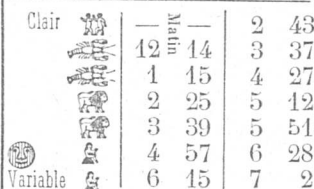 Clair — Matin — 2 43
12 14 3 37
1 15 4 27
2 25 5 12
3 39 5 51
4 57 6 28
Variable 6 15 7 2